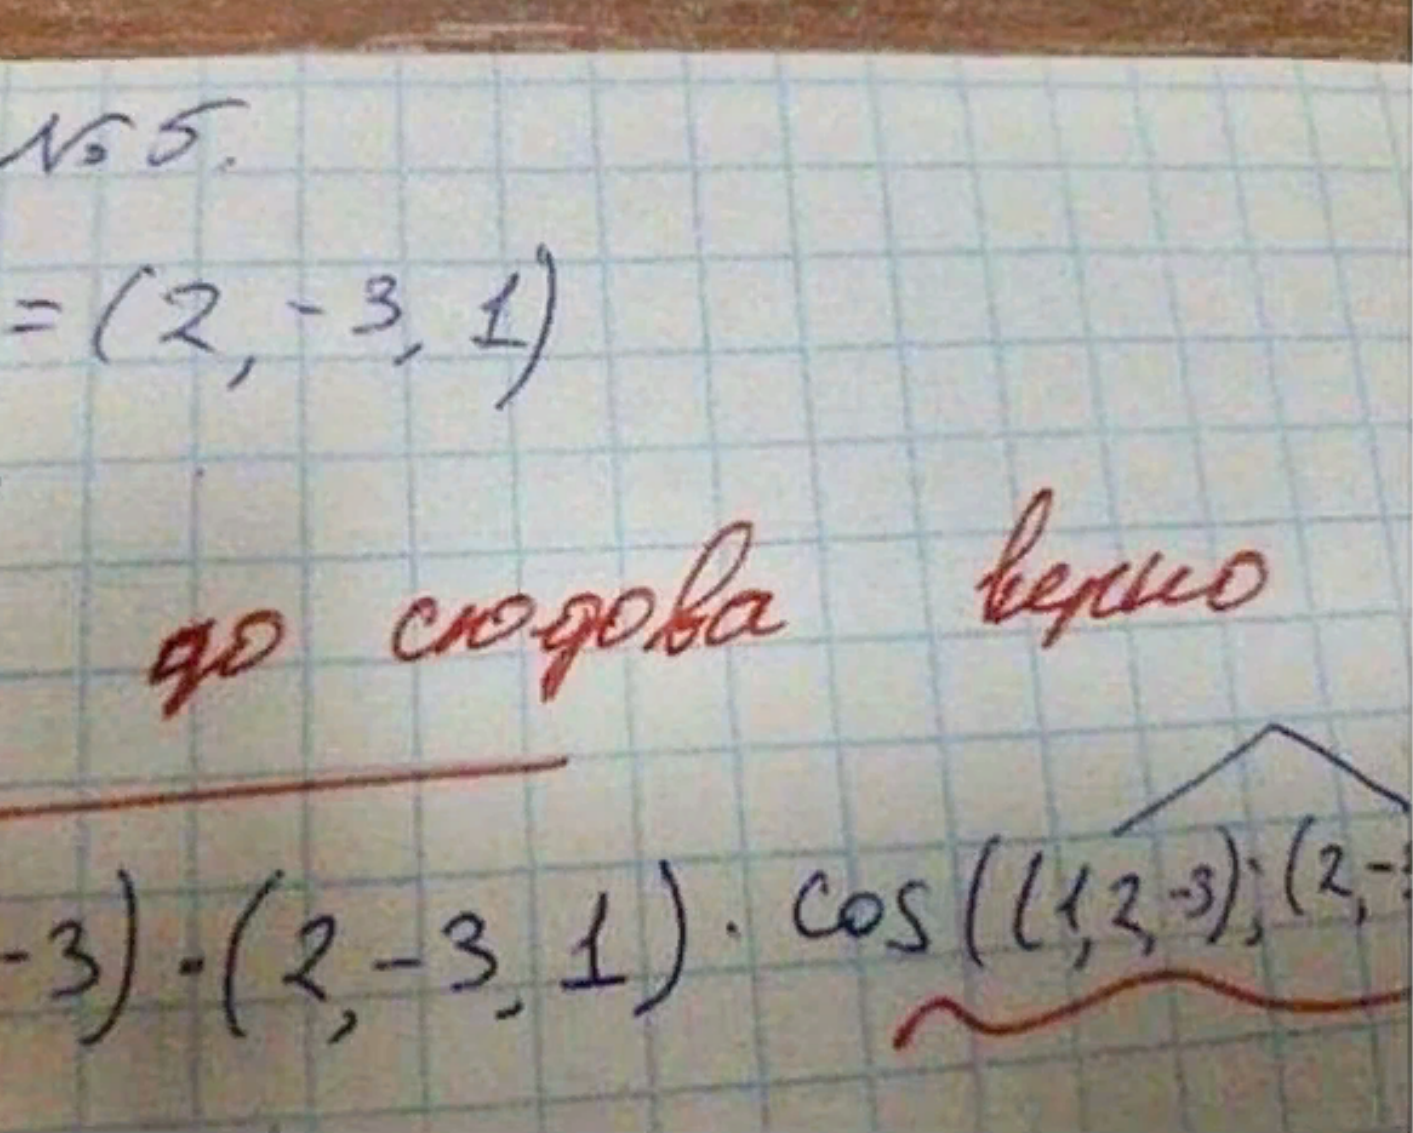 № 5.
= (2, -3, 1)
до сюдова верно
-3) · (2, -3, 1) · cos((1, 2, -3); (2, -